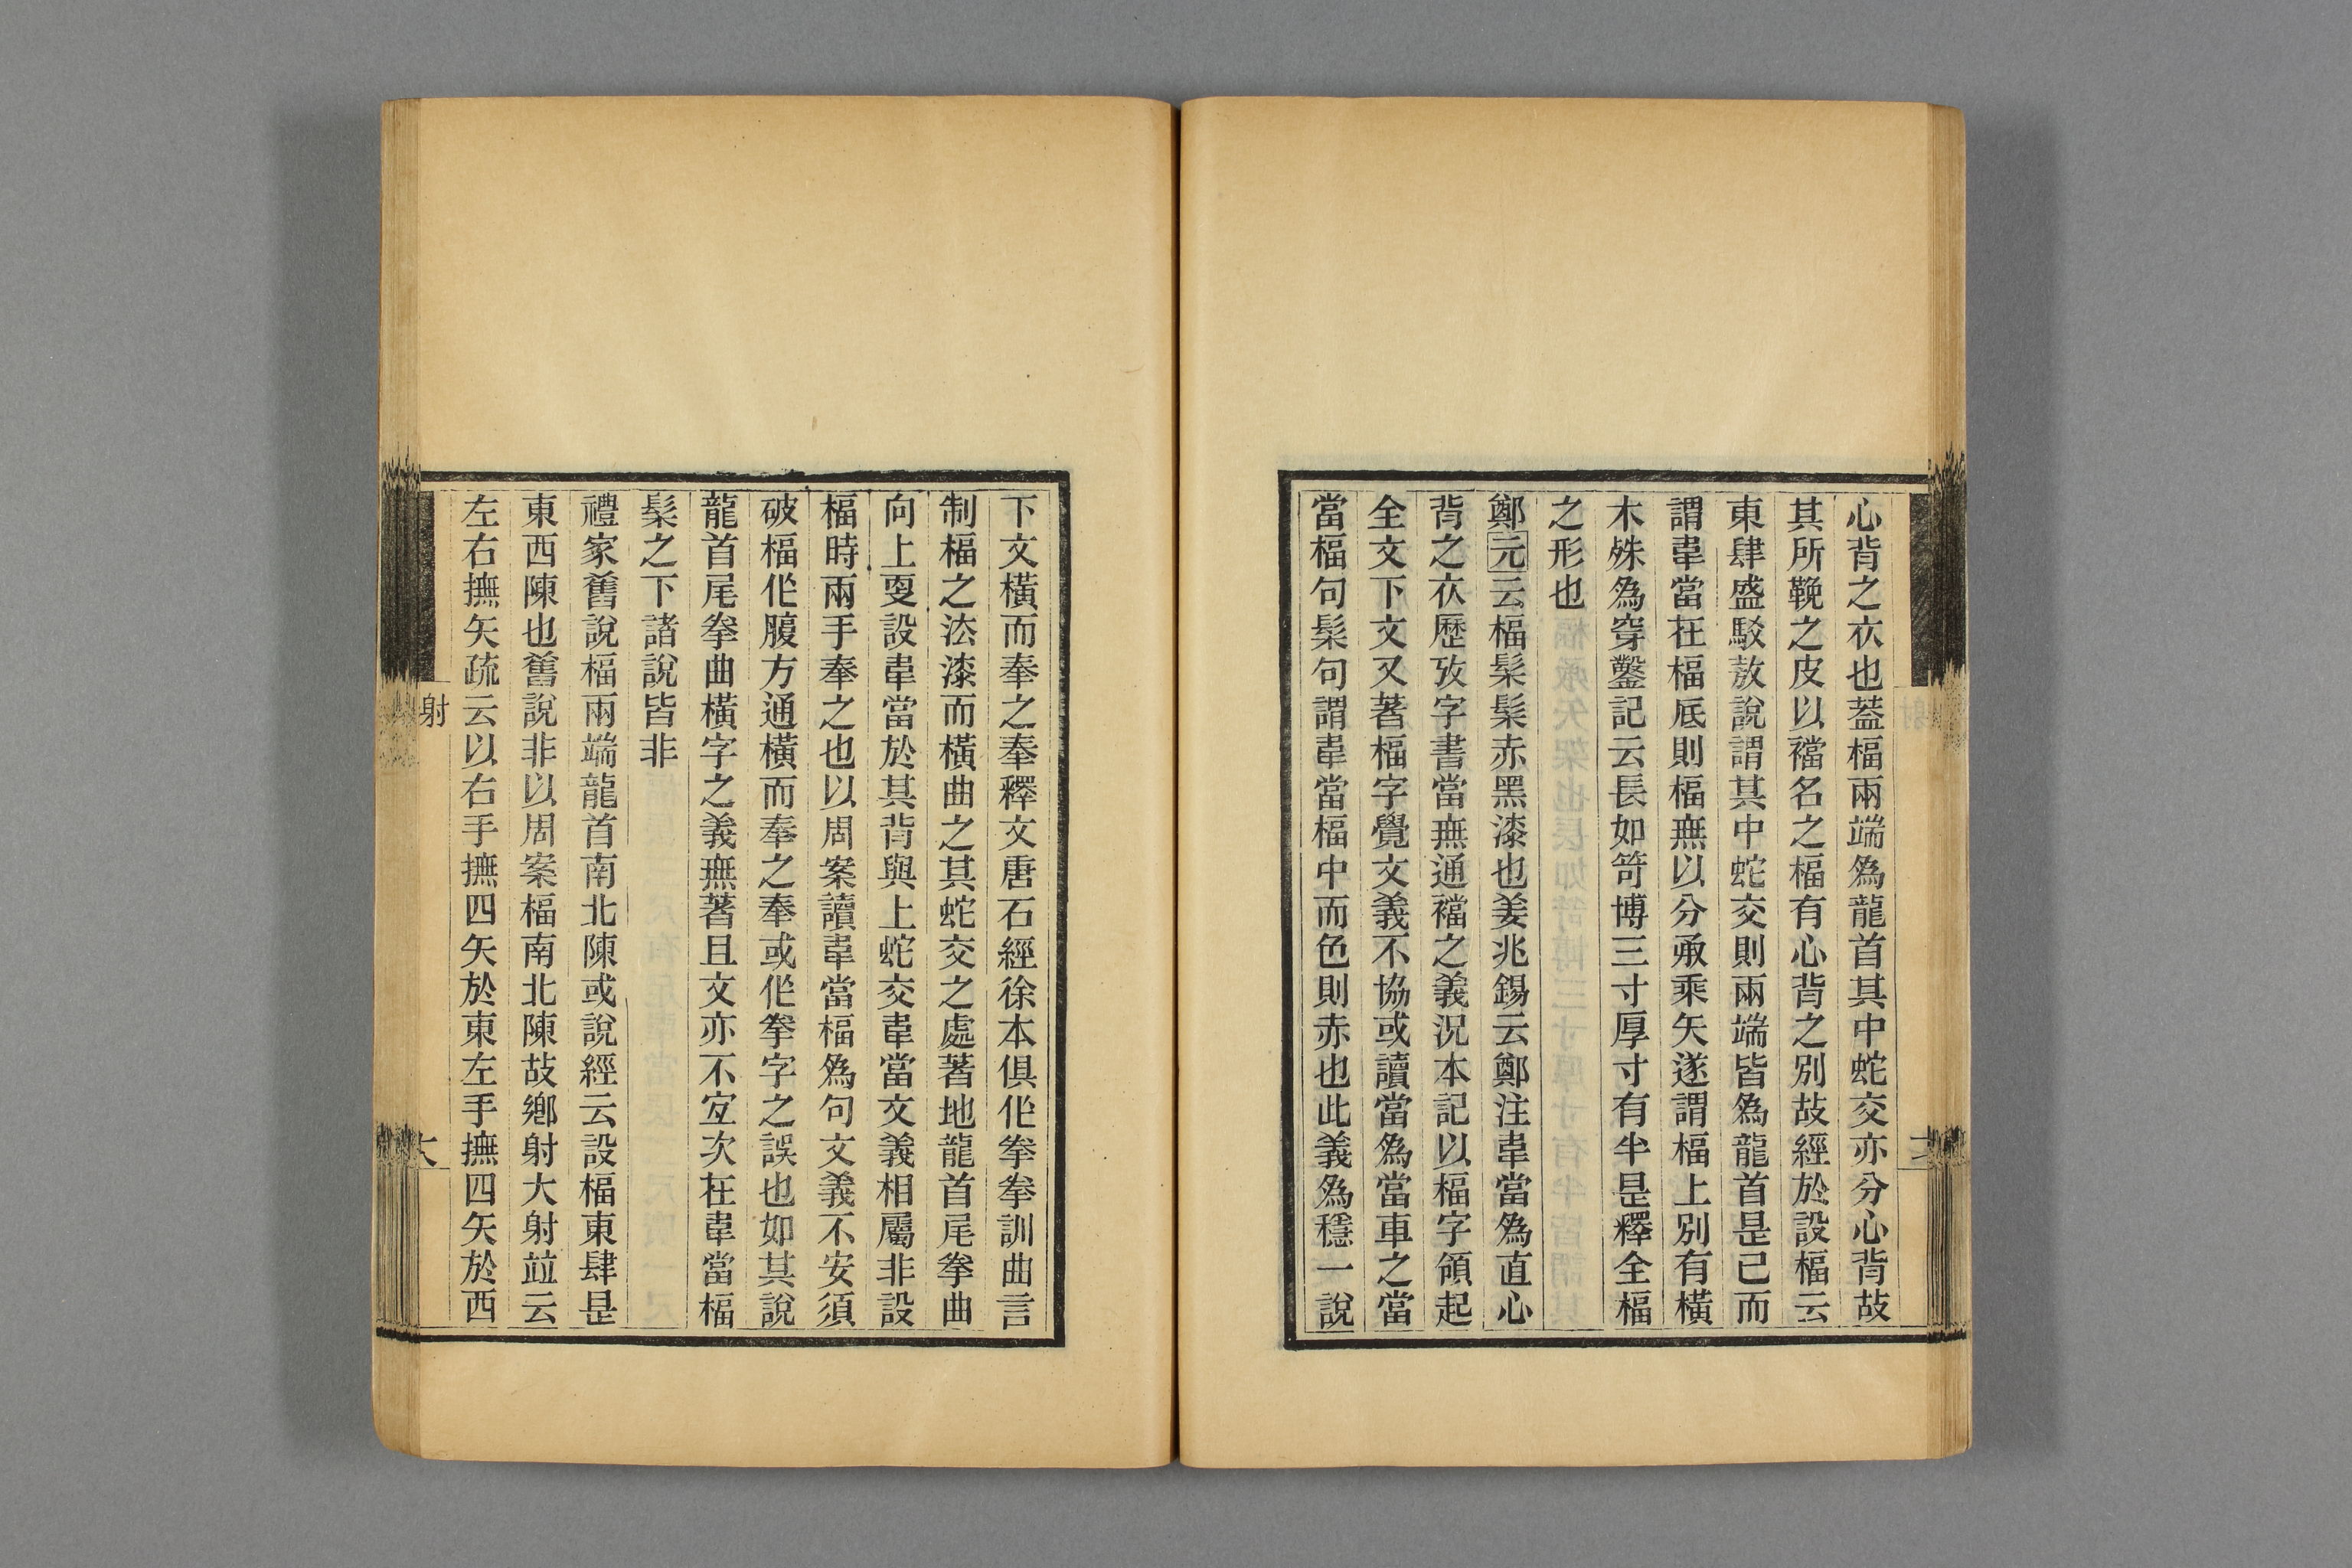 心背之衣也蓋楅兩端爲龍首其中蛇交亦分心背故
其所鞔之皮以襠名之楅有心背之別故經於設楅云
東肆盛駁敖說謂其中蛇交則兩端皆爲龍首是已而
謂韋當在楅底則楅無以分承乘矢遂謂楅上別有橫
木殊爲穿鑿記云長如笴博三寸厚寸有半是釋全楅
之形也
鄭元云楅髹髹赤黑漆也姜兆錫云鄭注韋當爲直心
背之衣歷攷字書當無通襠之義況本記以楅字領起
全文下文又著楅字覺文義不協或讀當爲當車之當
當楅句髹句謂韋當楅中而色則赤也此義爲穩一說
下文橫而奉之奉釋文唐石經徐本俱作拳拳訓曲言
制楅之法漆而橫曲之其蛇交之處著地龍首尾拳曲
向上更設韋當於其背與上蛇交韋當文義相屬非設
楅時兩手奉之也以周案讀韋當楅爲句文義不安須
破楅作腹方通橫而奉之奉或作拳字之誤也如其說
龍首尾拳曲橫字之義無著且文亦不宜次在韋當楅
髹之下諸說皆非
禮家舊說楅兩端龍首南北陳或說經云設楅東肆是
東西陳也舊說非以周案楅南北陳故鄉射大射竝云
左右撫矢疏云以右手撫四矢於東左手撫四矢於西
射